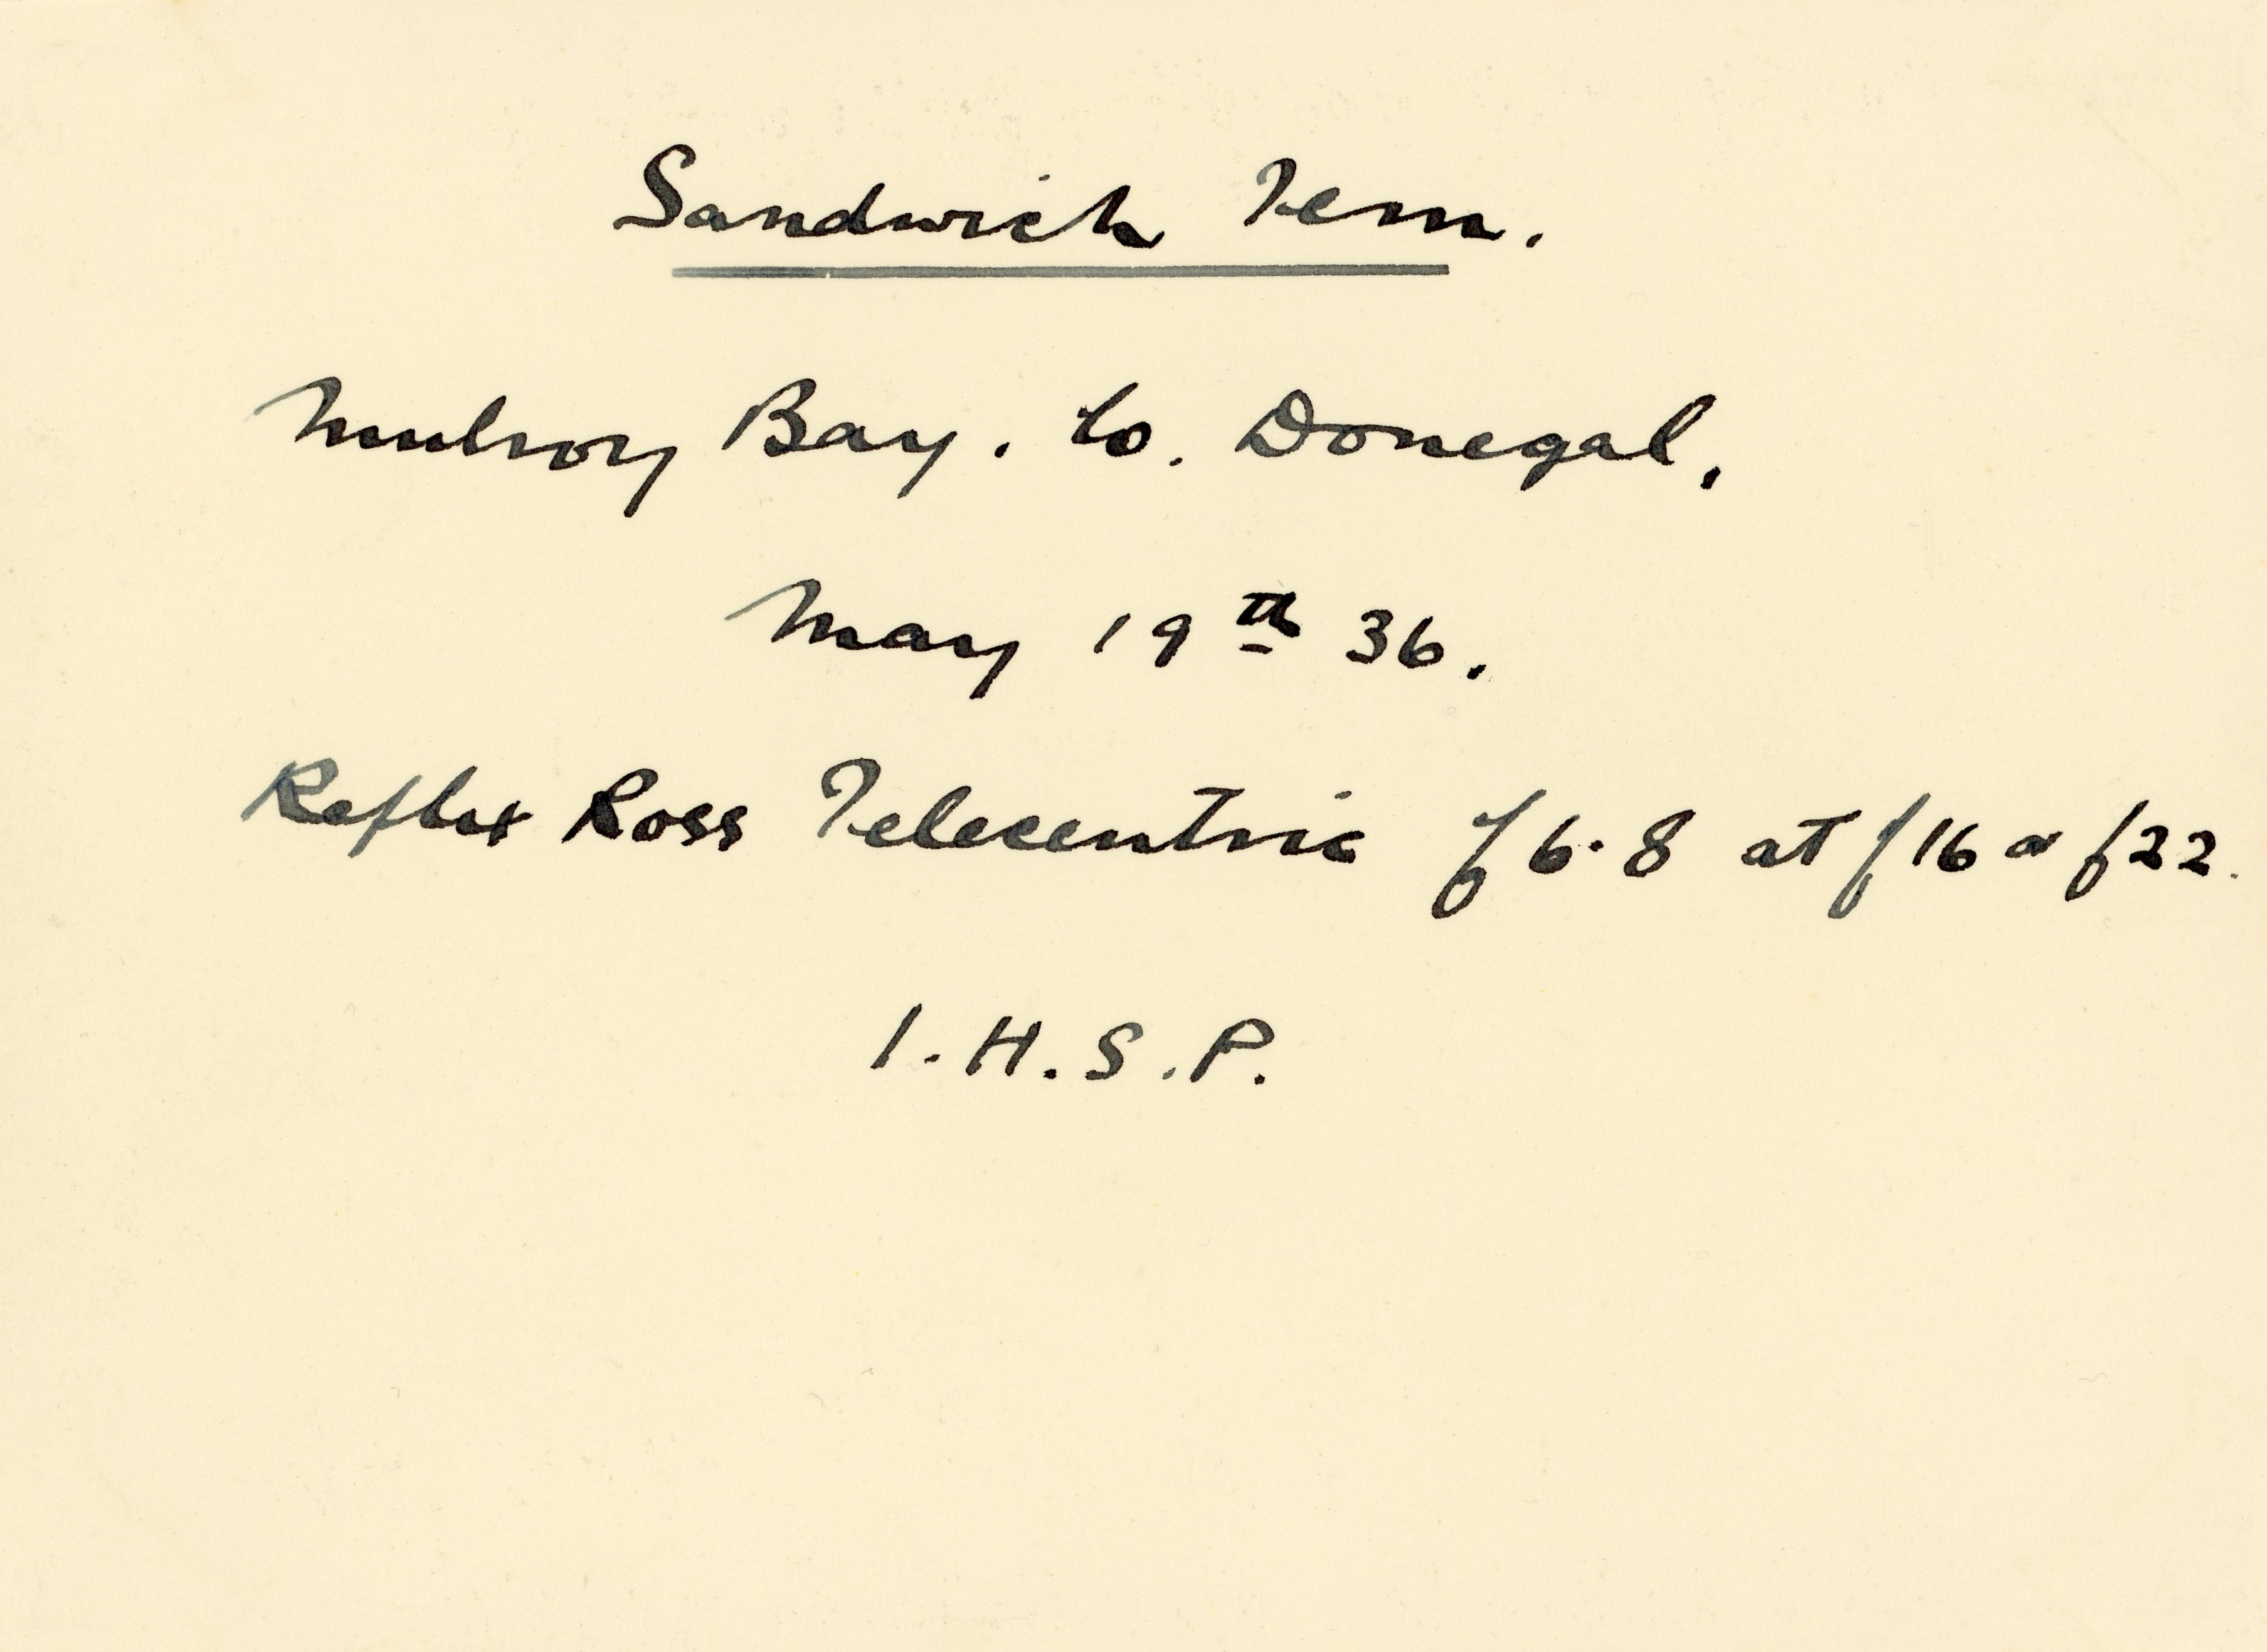 Sandwich Tern.
Mulroy Bay. Co. Donegal.
May 19th 36.
Reflex Ross Telecentric f6.8 at f16 or f22.
I.H.S.P.